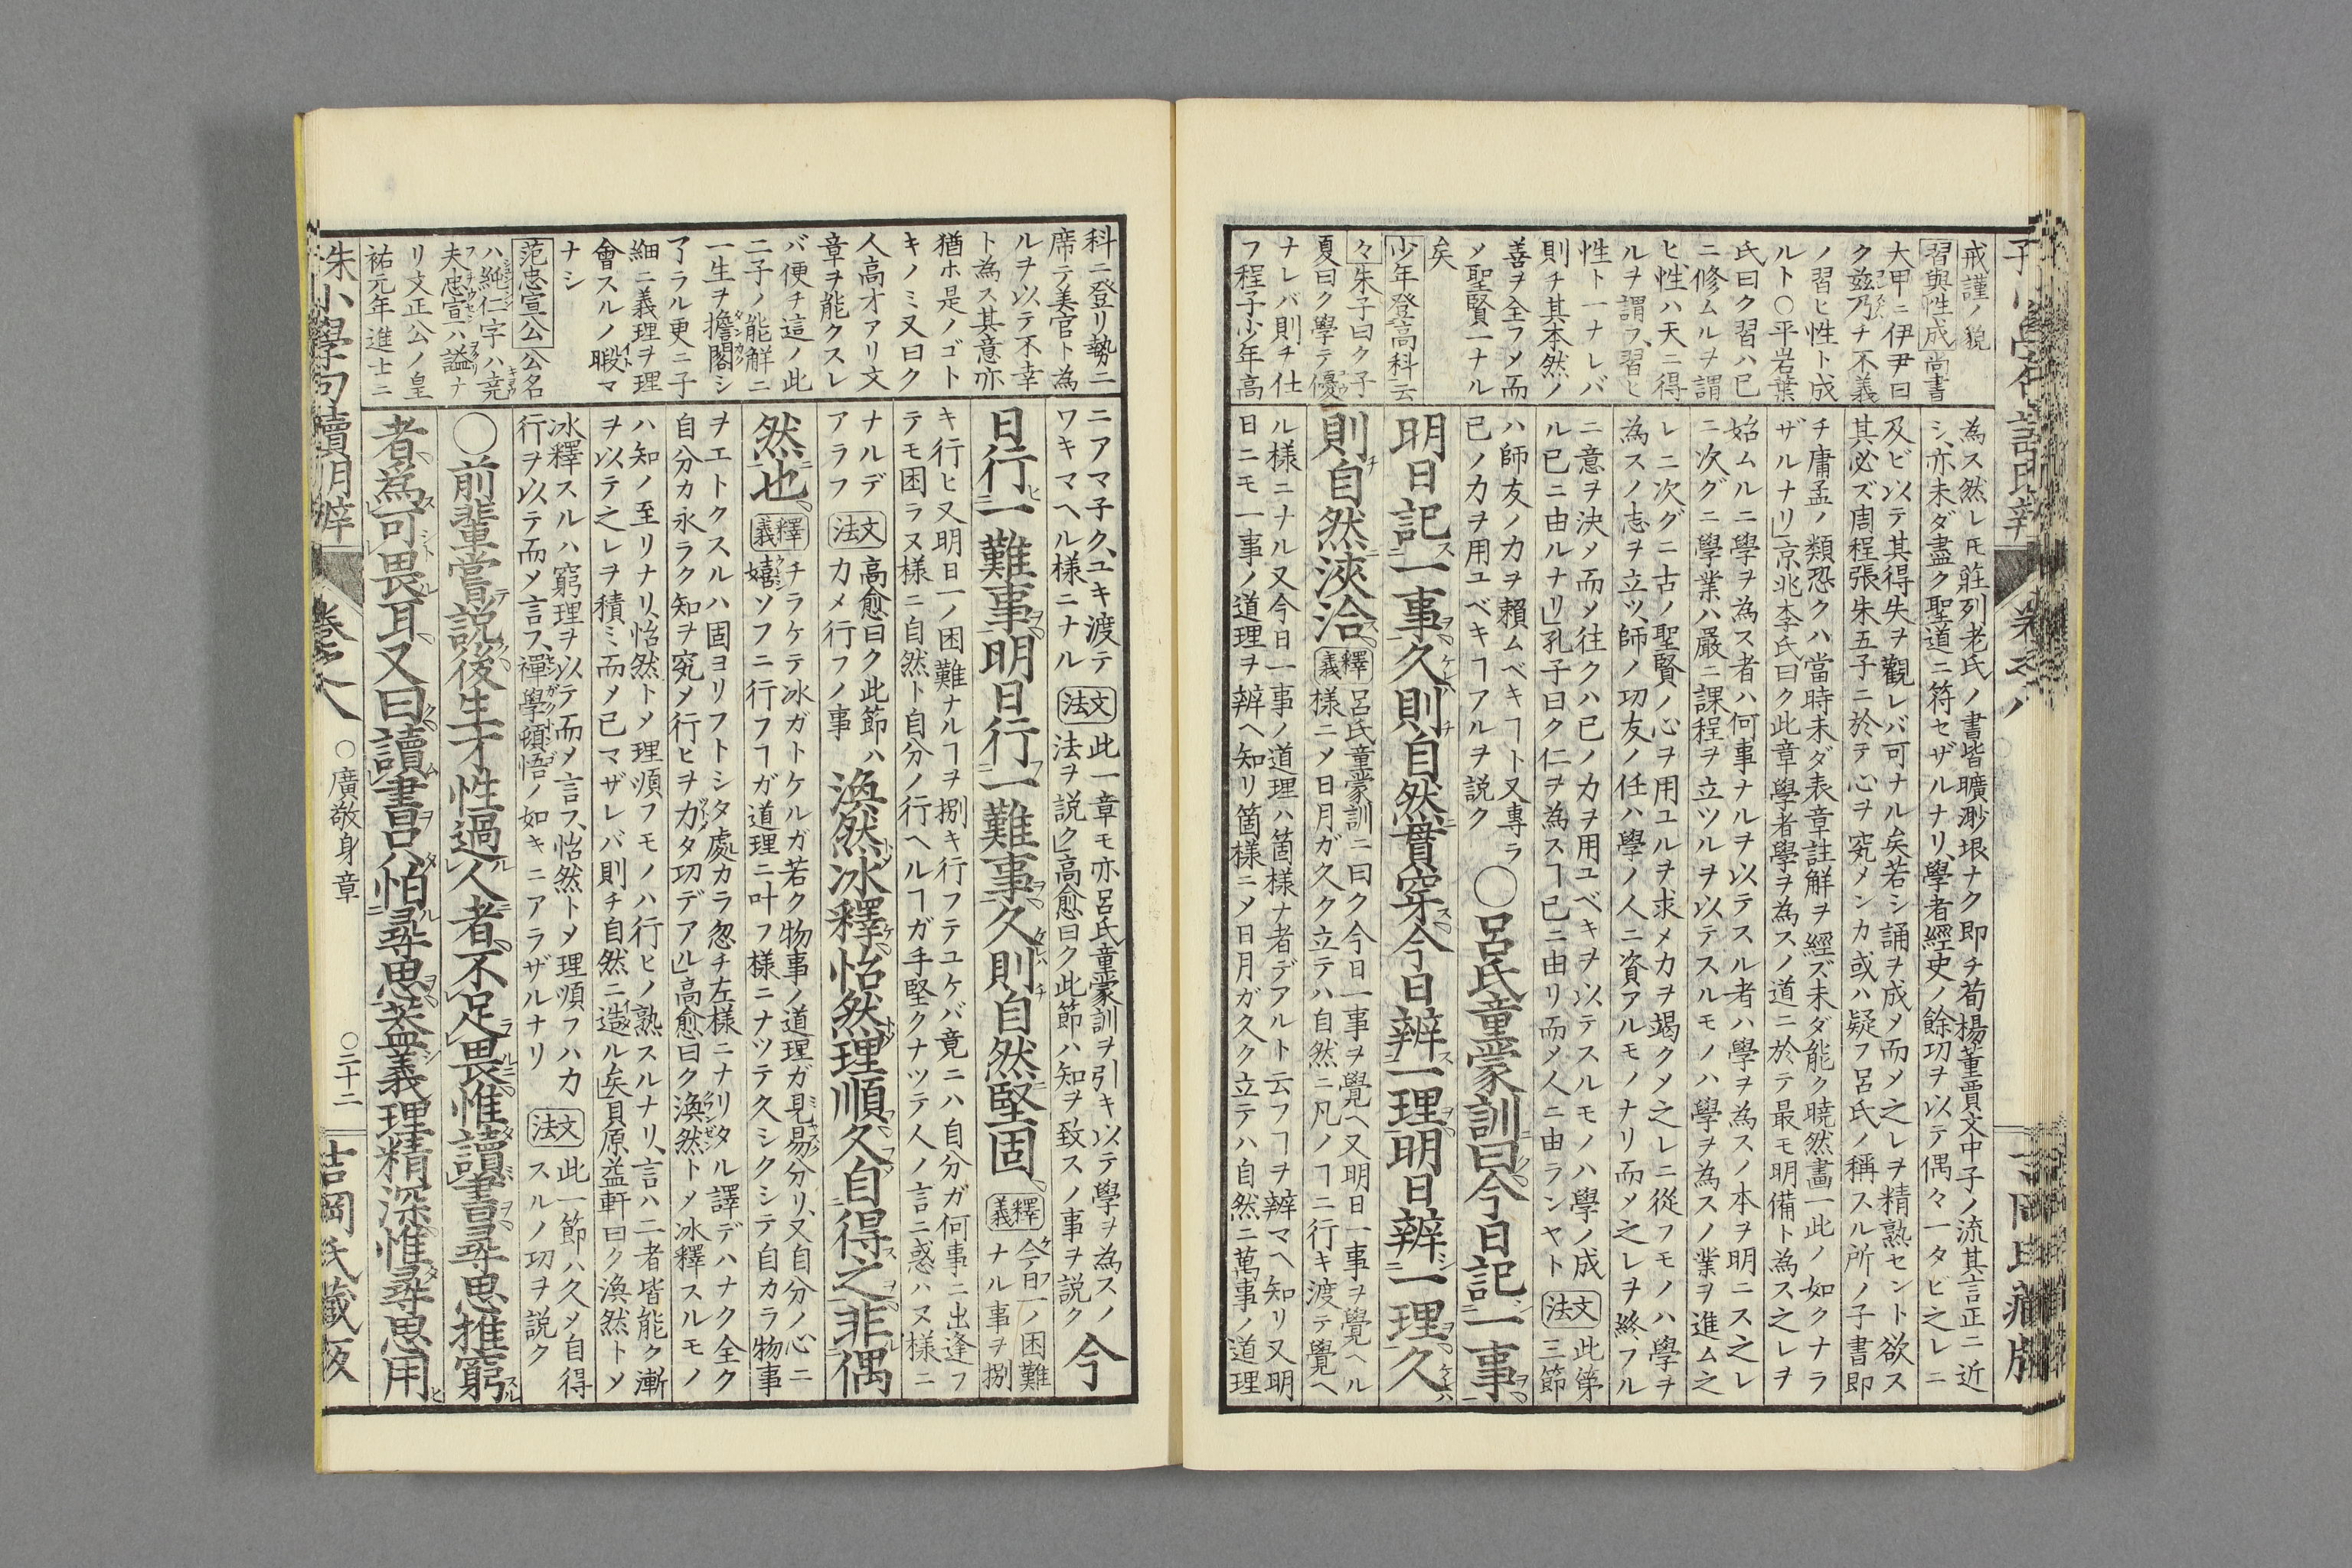 戒謹ノ貌
習與性成尚書
大甲ニ伊尹曰
ク茲乃チ不義
ノ習ヒ性ト成
ルト○平岩葉
氏曰ク習ハ已
ニ修ムルヲ謂
ヒ性ハ天ニ得
ルヲ謂フ、習ヒ
性ト一ナレバ
則チ其本然ノ
善ヲ全フメ而
メ聖賢一ナル
矣
少年登高科云
々朱子曰ク子
夏曰ク學テ優
ナレバ則チ仕
フ程子少年高
為ス然レ𪜈莊列老氏ノ書皆曠渺垠ナク即チ荀楊董賈文中子ノ流其言正ニ近
シ、亦未ダ盡ク聖道ニ符セザルナリ、學者經史ノ餘功ヲ以テ偶々一タビ之レニ
及ビ以テ其得失ヲ觀レバ可ナル矣若シ誦ヲ成メ而メ之レヲ精熟セント欲ス
其必ズ周程張朱五子ニ於テ心ヲ究メンカ或ハ疑フ呂氏ノ稱スル所ノ子書即
チ庸孟ノ類恐クハ當時未ダ表章註解ヲ經ズ未ダ能ク曉然畫一此ノ如クナラ
ザルナリ」京兆李氏曰ク此章學者學ヲ為スノ道ニ於テ最モ明備ト為ス之レヲ
始ムルニ學ヲ為ス者ハ何事ナルヲ以テスル者ハ學ヲ為スノ本ヲ明ニス之レ
ニ次グニ學業ハ嚴ニ課程ヲ立ツルヲ以テスルモノハ學ヲ為スノ業ヲ進ム之
レニ次グニ古ノ聖賢ノ心ヲ用ユルヲ求メカヲ竭クメ之レニ從フモノハ學ヲ
為スノ志ヲ立ツ、師ノ功友ノ任ハ學ノ人ニ資アルモノナリ而メ之レヲ終フル
ニ意ヲ決メ而メ往クハ已ノカヲ用ユベキヲ以テスルモノハ學ノ成
ル已ニ由ルナリ」孔子曰ク仁ヲ為スヿ已ニ由リ而メ人ニ由ランヤト
文法
此第
三節
ハ師友ノカヲ賴ムベキヿト又專ラ
已ノカヲ用ユベキヿアルヲ説ク
○呂氏童蒙訓曰今日記一事
明日記一事久則自然貫穿今日辨一理明日辨一理久
則自然浹洽
釋義
呂氏童蒙訓ニ曰ク今日一事ヲ覺ヘ又明日一事ヲ覺ヘル
樣ニメ日月ガ久ク立テハ自然ニ凡ノヿニ行キ渡テ覺ヘ
ル樣ニナル又今日一事ノ道理ハ箇樣ナ者デアルト云フヿヲ辨マヘ知リ又明
日ニモ一事ノ道理ヲ辨ヘ知リ箇樣ニメ日月ガ久ク立テハ自然ニ萬事ノ道理
科ニ登リ勢ニ
席テ美官ト為
ルヲ以テ不幸
ト為ス其意亦
猶ホ是ノゴト
キノミ又曰ク
人高才アリ文
章ヲ能クスレ
バ便チ這ノ此
二子ノ能解ニ
一生ヲ擔閣シ
了ラル更ニ子
細ニ義理ヲ理
會スルノ暇マ
ナシ
范忠宣公公名
ハ純仁字ハ堯
夫忠宣ハ謚ナ
リ文正公ノ皇
祐元年進士ニ
ニアマ子ク、ユキ渡テ
ワキマヘル樣ニナル
文法
此一章モ亦呂氏童蒙訓ヲ引キ以テ學ヲ為スノ
法ヲ説ク」高愈曰ク此節ハ知ヲ致スノ事ヲ説ク
今
日行一難事明日行一難事久則自然堅固
釋義
今日一ノ困難
ナル事ヲ捌
キ行ヒ又明日一ノ困難ナルヿヲ捌キ行フテユケバ竟ニハ自分ガ何事ニ出逢フ
テモ困ラヌ樣ニ自然ト自分ノ行ヘルヿガ手堅クナツテ人ノ言ニ惑ハヌ樣ニ
ナルデ
アラフ
文法
高愈曰ク此節ハ
カメ行フノ事
渙然冰釋怡然理順久自得之非偶
然也
釋義
チラケテ冰ガトケルガ若ク物事ノ道理ガ見易分リ、又自分ノ心ニ
嬉ソフニ行フヿガ道理ニ叶フ樣ニナツテ久シクシテ自カラ物事
ヲエトクスルハ固ヨリフトシタ處カラ忽チ左樣ニナリタル譯デハナク全ク
自分カ永ラク知ヲ究メ行ヒヲガタ功デアル」高愈曰ク渙然トメ冰釋スルモノ
ハ知ノ至リナリ、怡然トメ理順フモノハ行ヒノ熟スルナリ、言ハ二者皆能ク漸
ヲ以テ之レヲ積ミ而メ已マザレバ則チ自然ニ造ル矣」貝原益軒曰ク渙然トメ
冰釋スルハ窮理ヲ以テ而メ言フ、怡然トメ理順フハカ
行ヲ以テ而メ言フ、禪學頓悟ノ如キニアラザルナリ
文法
此一節ハ久メ自得
スルノ功ヲ説ク
○前輩嘗説後生才性過人者不足畏惟讀書尋思推窮
者為可畏耳又曰讀書只怕尋思蓋義理精深惟尋思用
朱小學句讀明辨
卷之八
○廣敬身章
○三十二
吉岡氏藏版